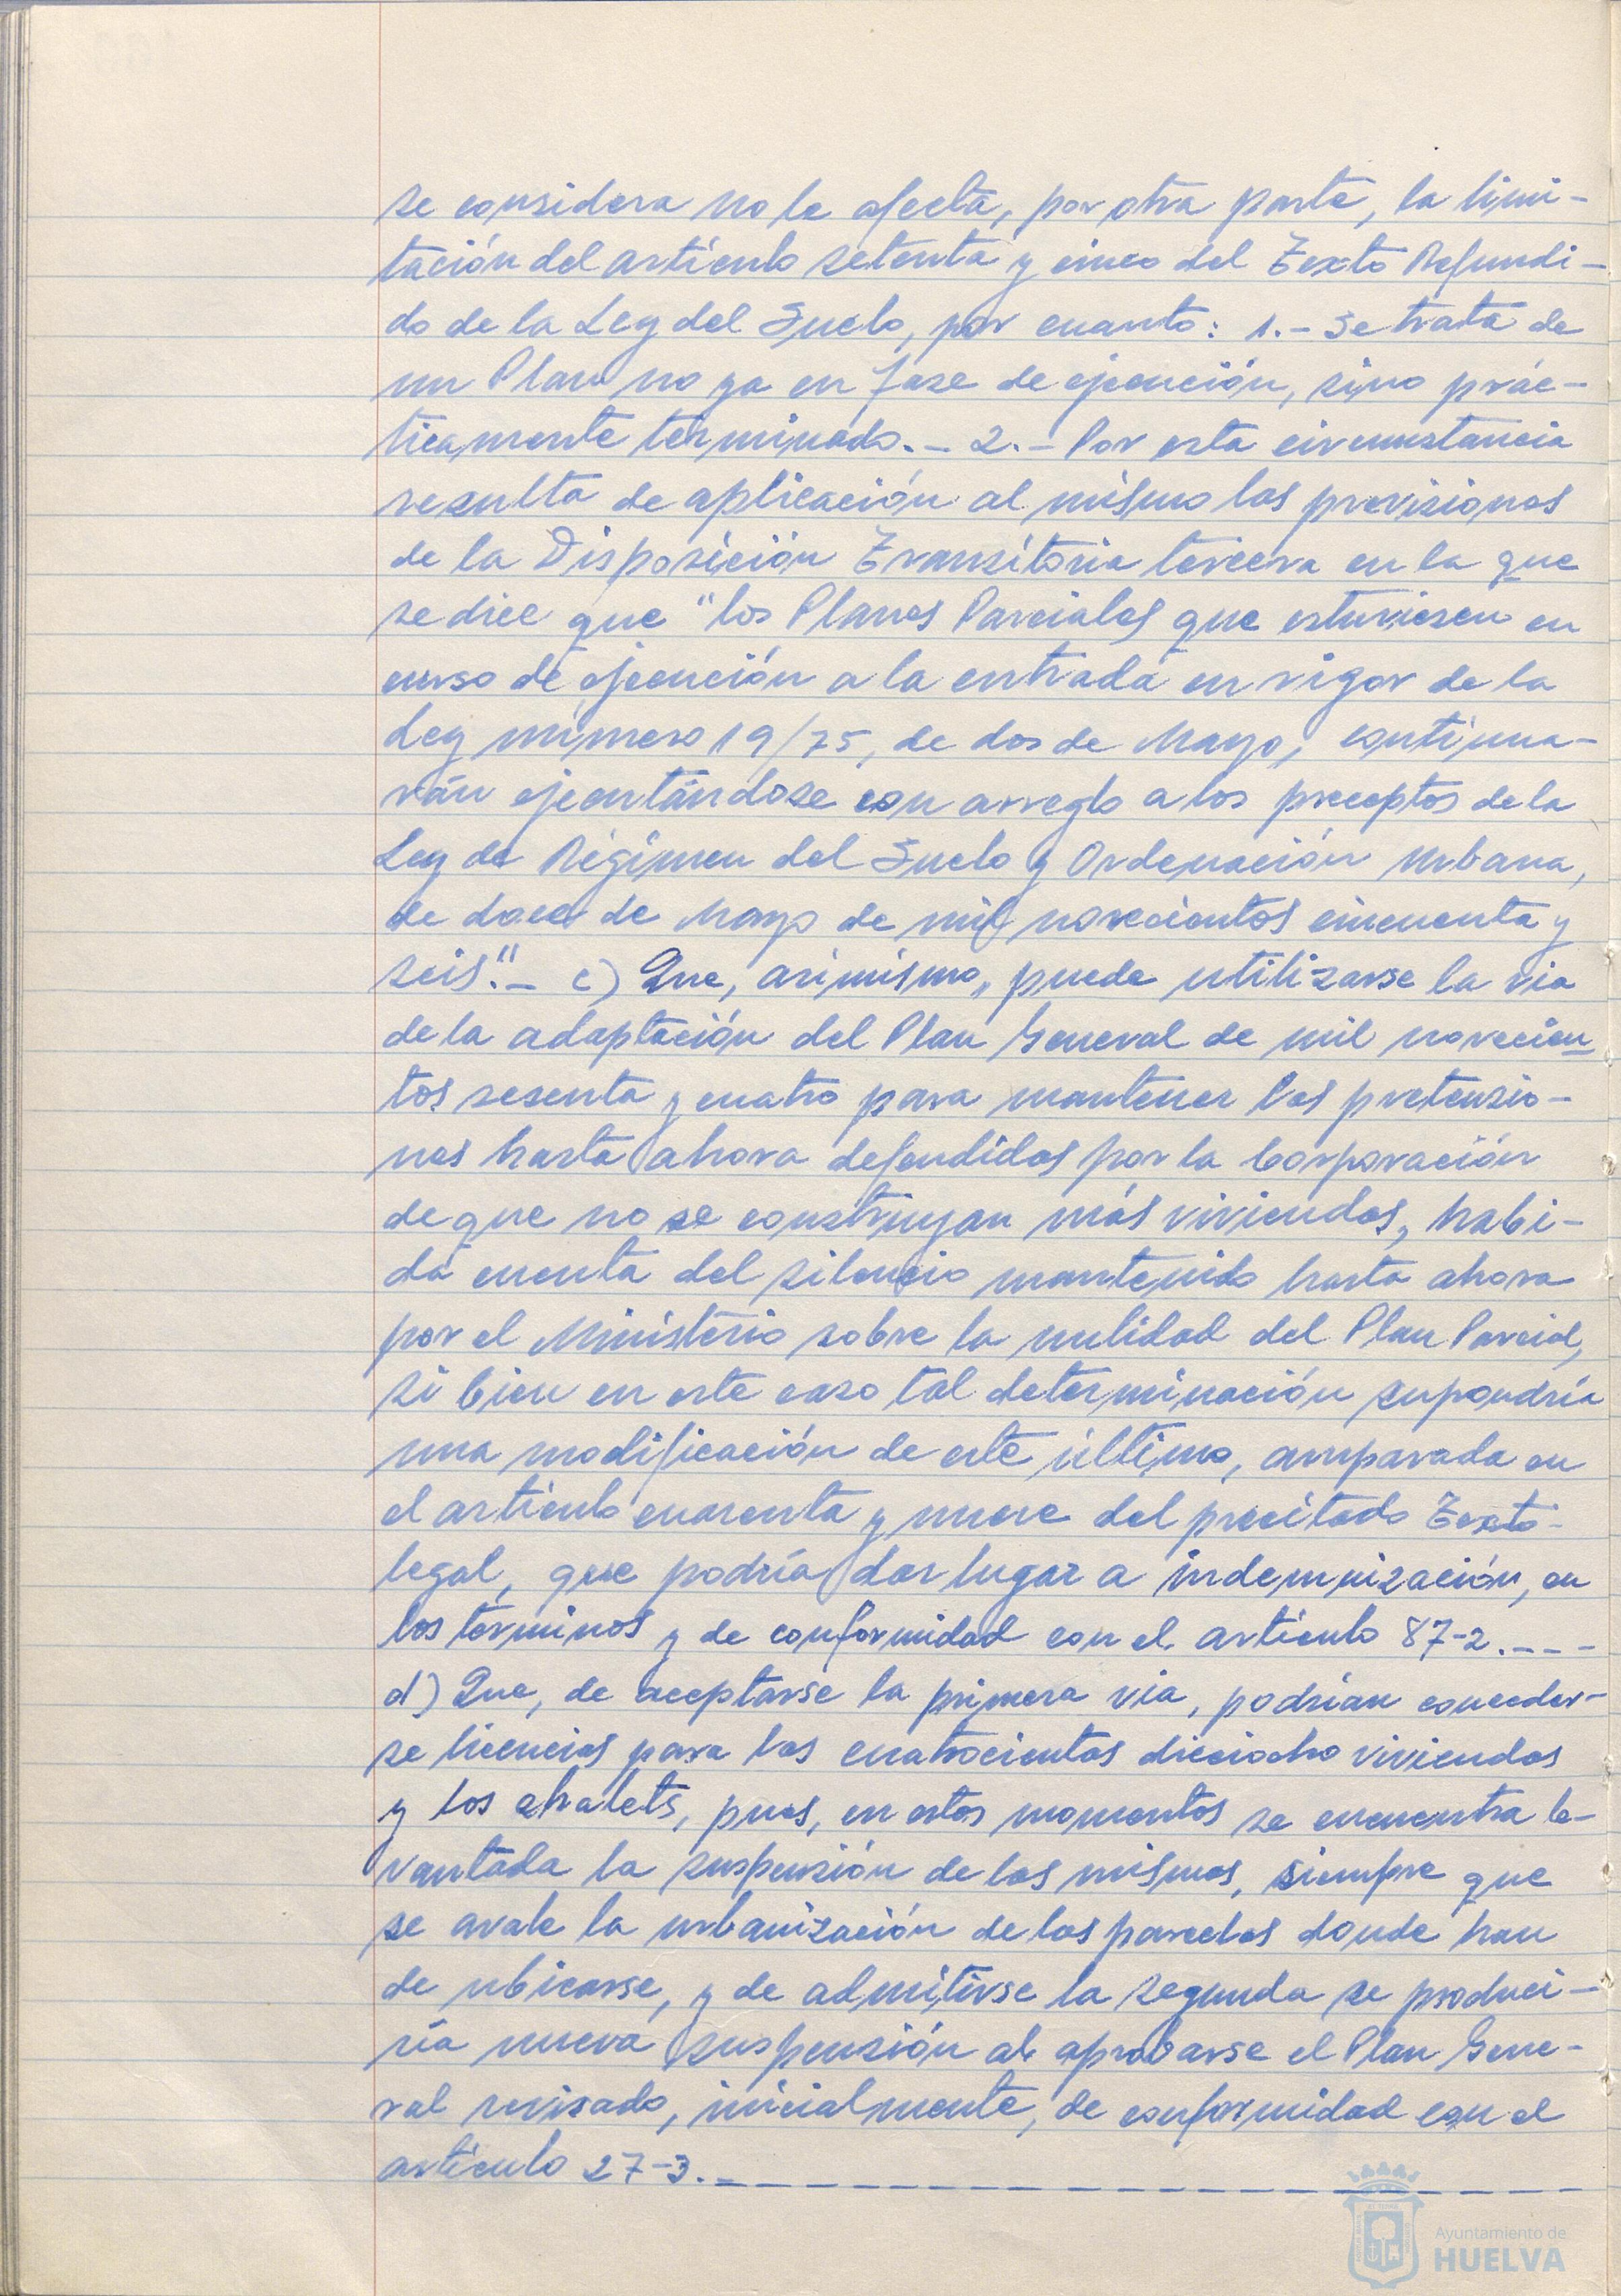 se considera no le afecta, por otra parte, la limi-
tación del artículo setenta y cinco del Texto Refundi-
do de la Ley del Suelo, por cuanto: 1.- Se trata de
un Plan no ya en fase de ejecución, sino prác-
ticamente terminado.- 2.- Por esta circunstancia
resulta de aplicación al mismo las previsiones
de la Disposición Transitoria tercera en la que
se dice que "los Planes Parciales que estuviesen en
curso de ejecución a la entrada en vigor de la
Ley número 19/75, de dos de Mayo, continua-
rán ejecutándose con arreglo a los preceptos de la
Ley de Régimen del Suelo y Ordenación Urbana,
de doce de Mayo de mil novecientos cincuenta y
seis".- c) Que, asimismo, puede utilizarse la via
de la adaptación del Plan General de mil novecien-
tos sesenta y cuatro para mantener las pretensio-
nes hasta ahora defendidas por la Corporación
de que no se construyan más viviendas, habi-
da cuenta del silencio mantenido hasta ahora
por el Ministerio sobre la nulidad del Plan Parcial,
si bien en este caso tal determinación supondría
una modificación de este último, amparada en
el artículo cuarenta y nueve del precitado Texto
legal, que podría dar lugar a indemnización, en
los términos y de conformidad con el artículo 87-2.---
d) Que, de aceptarse la primera via, podrían conceder-
se licencias para las cuatrocientas dieciocho viviendas
y los chalets, pues, en estos momentos se encuentra le-
vantada la suspensión de las mismas, siempre que
se avale la urbanización de las parcelas donde han
de ubicarse, y de admitirse la segunda se produci-
ría nueva suspensión al aprobarse el Plan Gene-
ral revisado, inicialmente, de conformidad con el
artículo 27-3.-
Ayuntamiento de
HUELVA